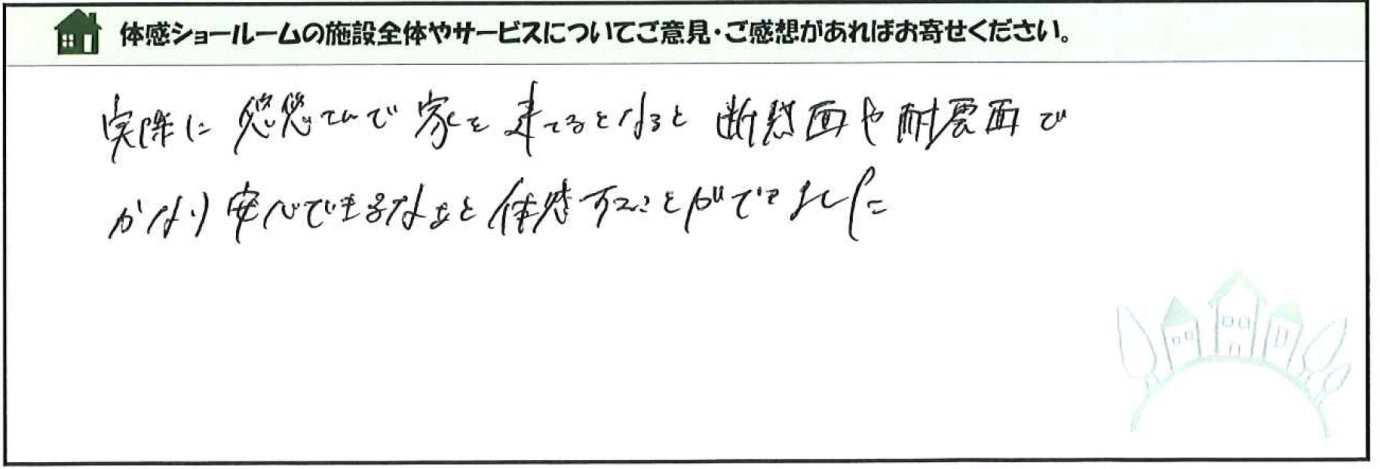 体感ショールームの施設全体やサービスについてご意見・ご感想があればお寄せください。
実際に悠悠てんで家を建てるとなると断熱面や耐震面で
かなり安心できるなぁと体感することができました